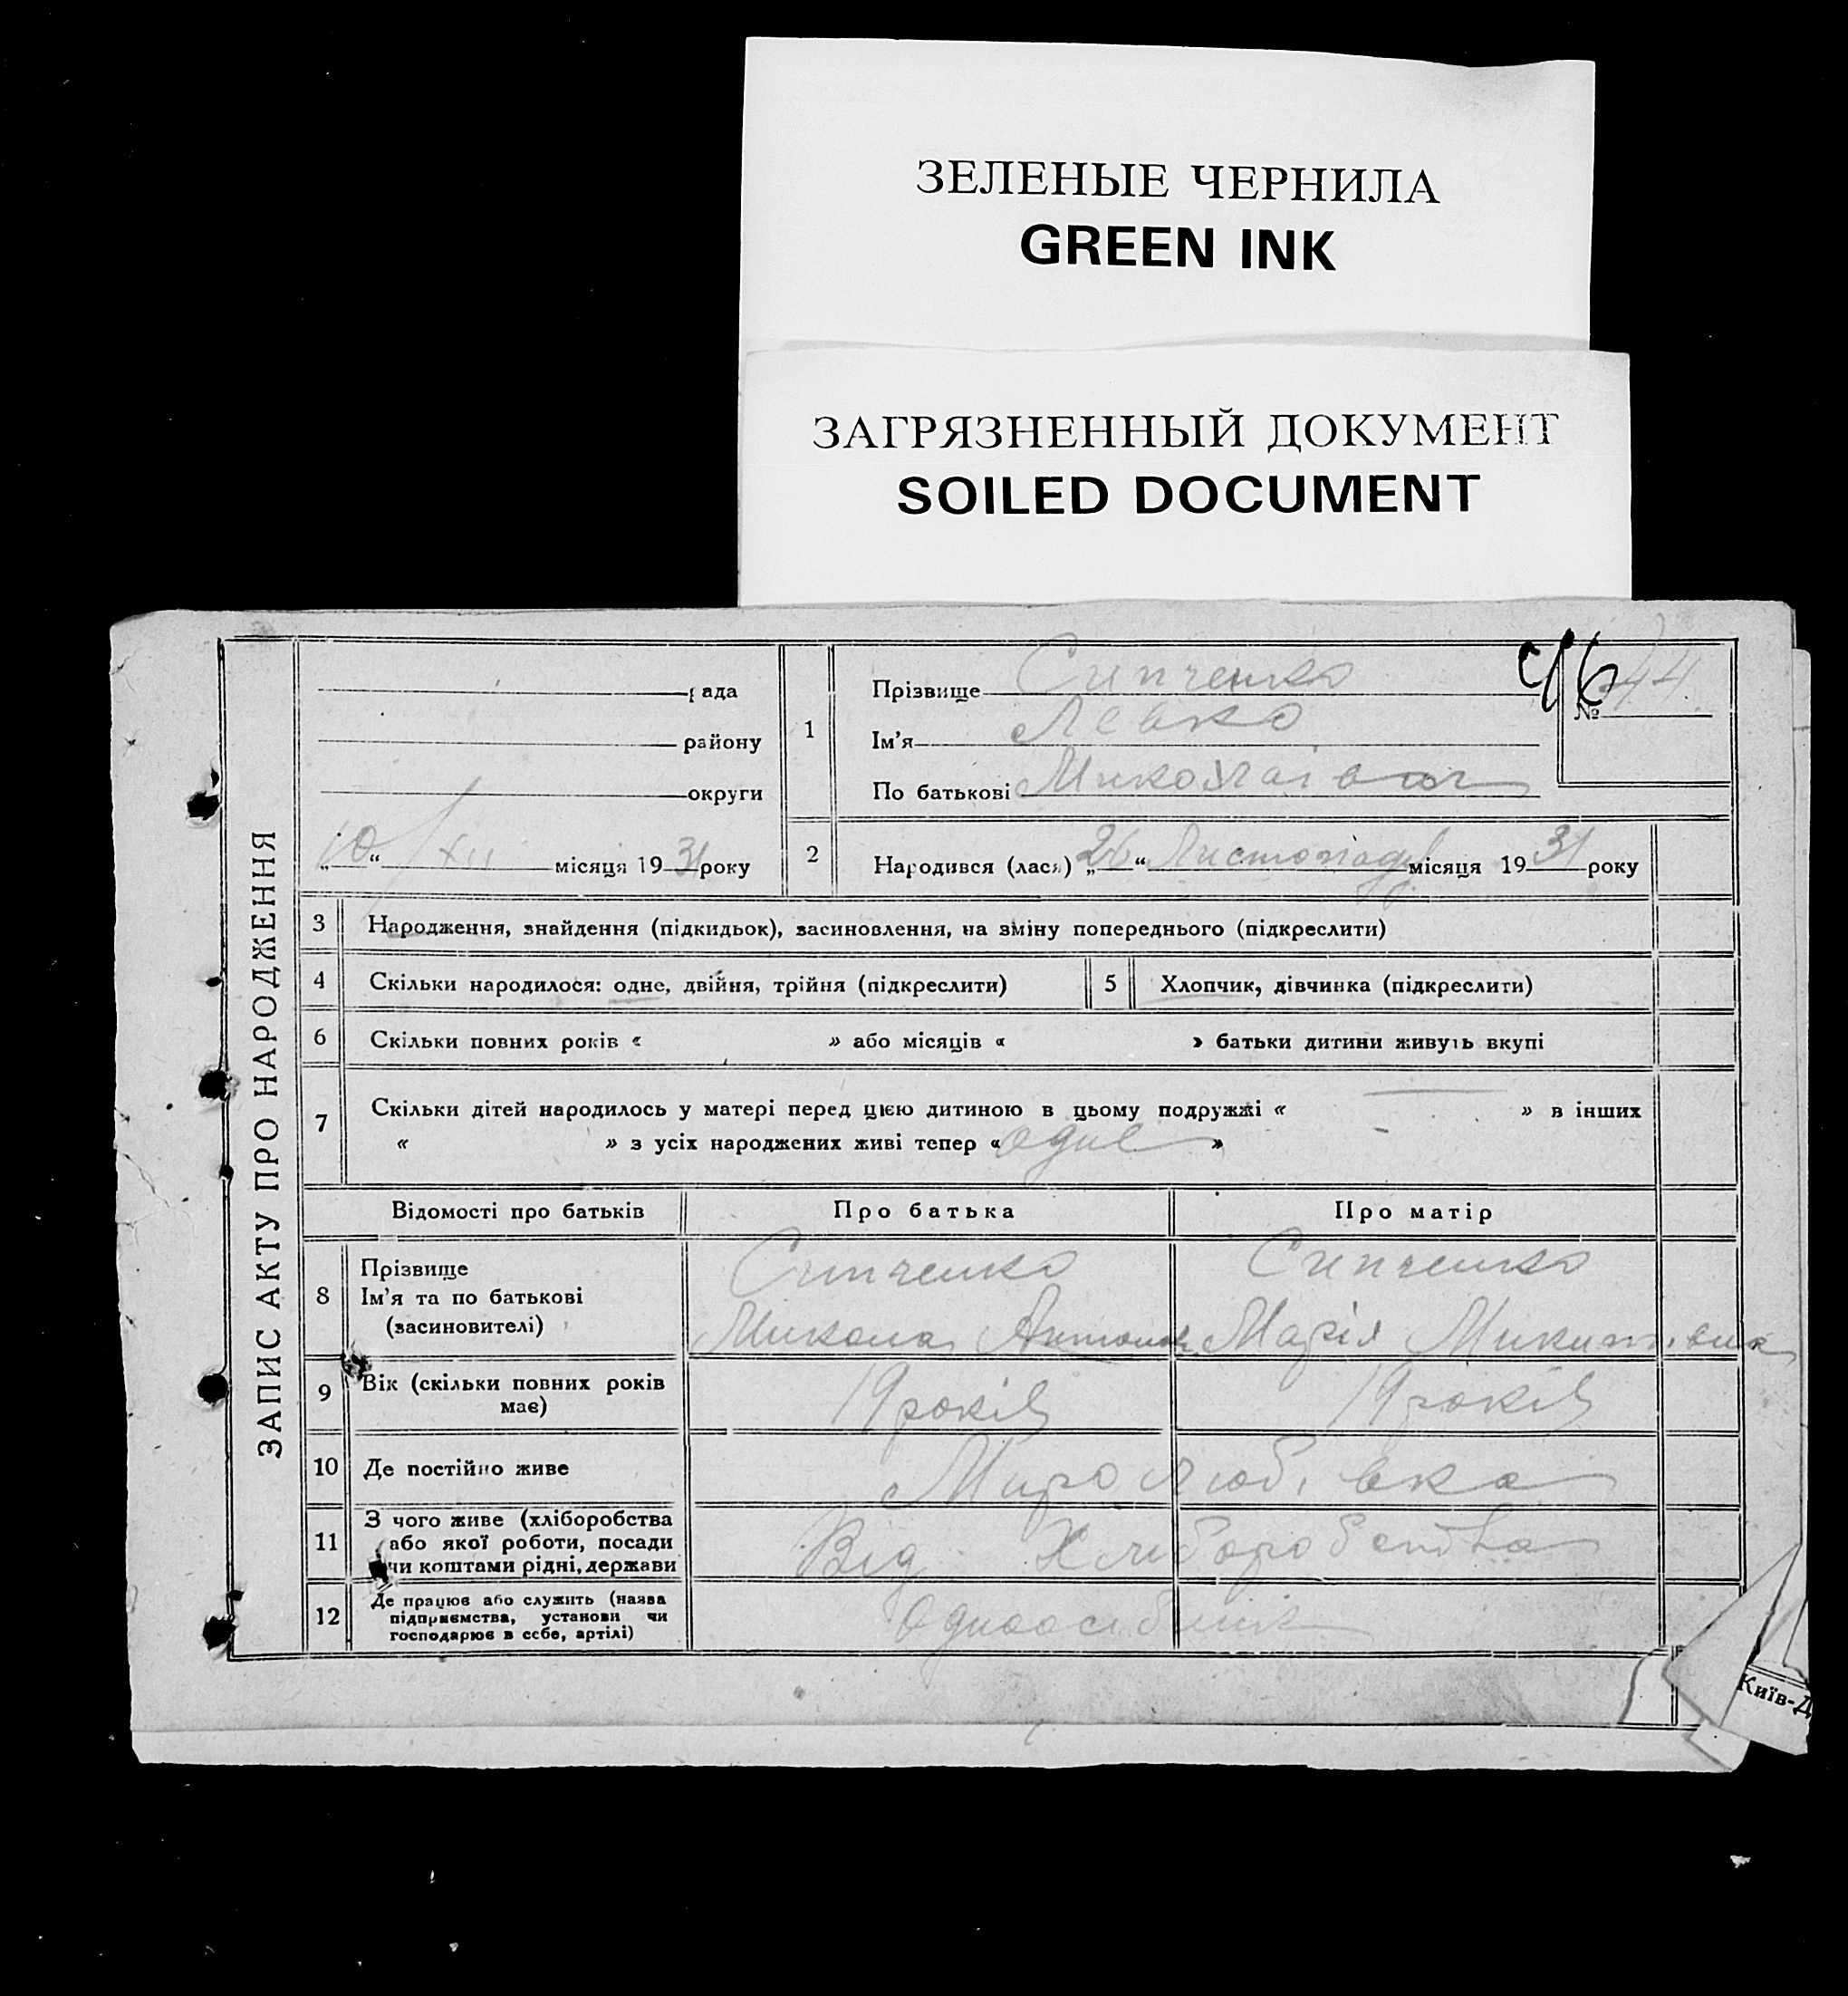 ЗЕЛЕНЫЕ ЧЕРНИЛА
GREEN INK
ЗАГРЯЗНЕННЫЙ ДОКУМЕНТ
SOILED DOCUMENT
ЗАПИС АКТУ ПРО НАРОДЖЕННЯ
рада
району
округи
„10“ XII місяця 1931 року
1
Прізвище Сипченко
Ім'я Левко
По батькові Миколаівич
№ 44
2
Народився (лася) „26“ Листопада місяця 1931 року
3 Народження, знайдення (підкидьок), засиновлення, на зміну попереднього (підкреслити)
4 Скільки народилося: одне, двійня, трійня (підкреслити)
5 Хлопчик, дівчинка (підкреслити)
6 Скільки повних років « » або місяців « » батьки дитини живуть вкупі
7 Скільки дітей народилось у матері перед цією дитиною в цьому подружжі « » в інших
« » з усіх народжених живі тепер «одне»
Відомості про батьків Про батька Про матір
8 Прізвище
Ім'я та по батькові
(засиновителі)
Сипченко
Микола Антонов
Сипченко
Марія Микитівна
9 Вік (скільки повних років
має)
19 років 19 років
10 Де постійно живе Миролюбівка
11 З чого живе (хліборобства
або якої роботи, посади
чи коштами рідні, держави
Від Хліборобства
12 Де працює або служить (назва
підприємства, установи чи
господарює в себе, артілі)
Одноосібник
Київ-Д